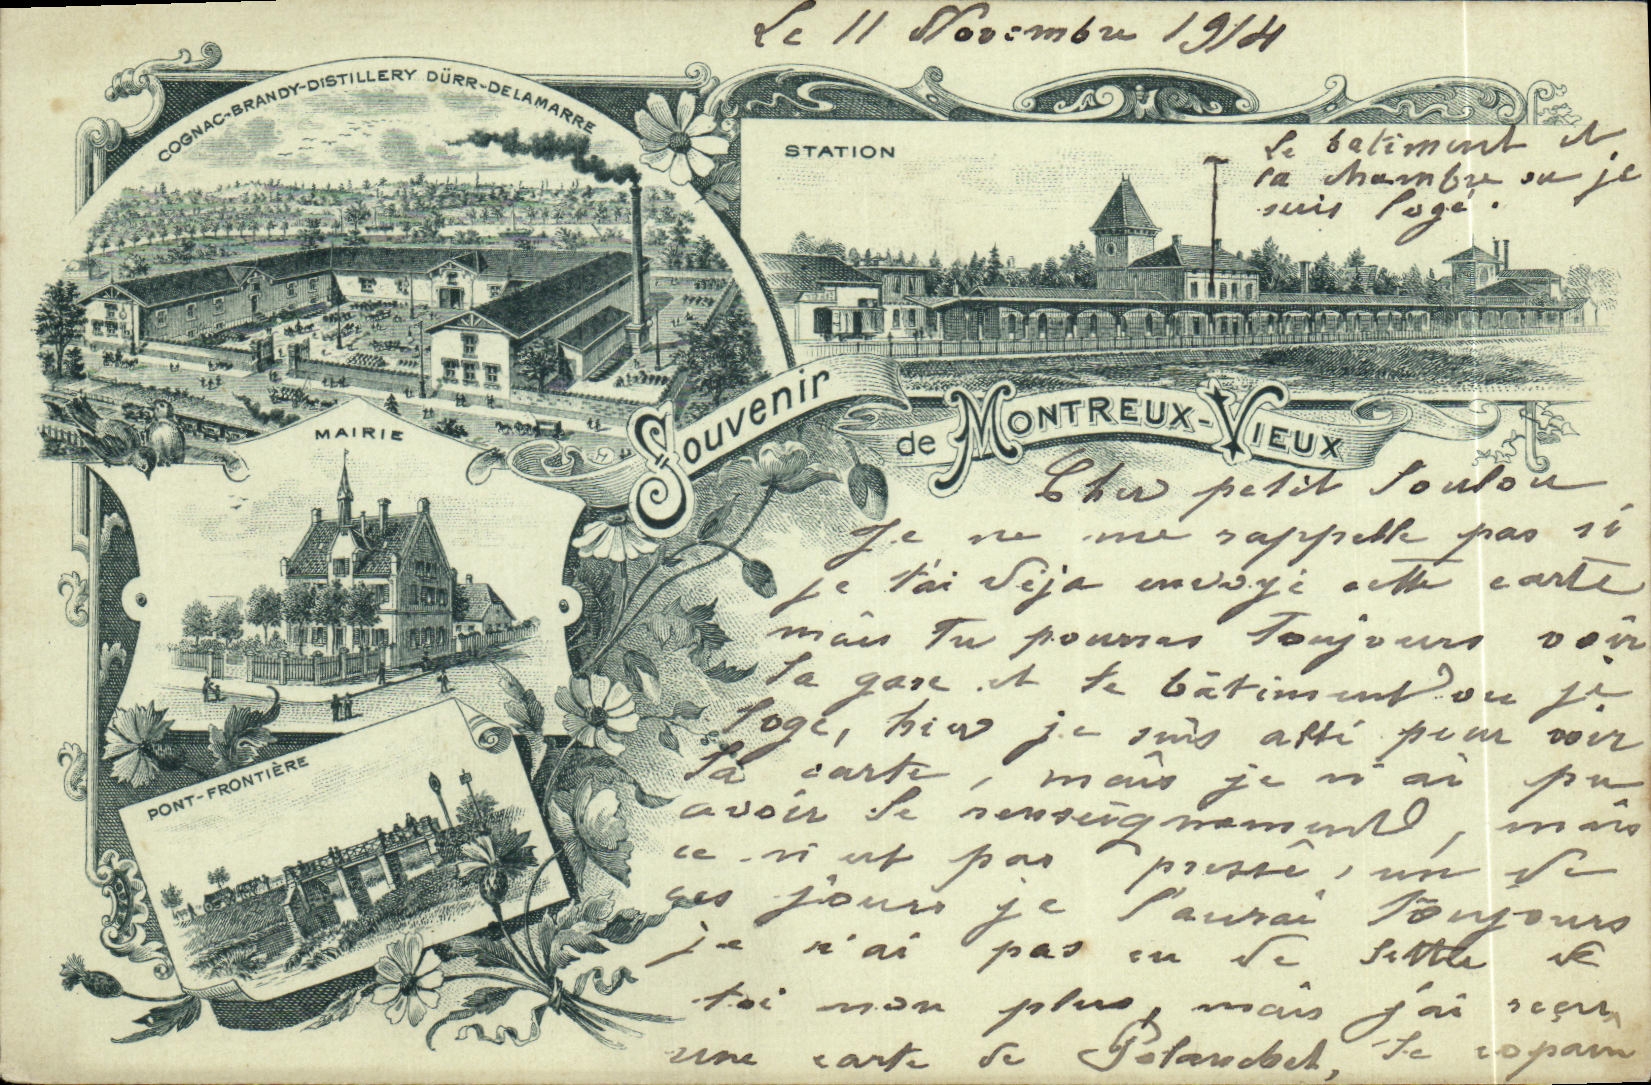 Le 11 Novembre 1914
COGNAC-BRANDY-DISTILLERY DÜRR-DELAMARRE
STATION
Le batiment et
la chambre ou je
suis logé.
Souvenir
de MONTREUX-VIEUX
MAIRIE
PONT-FRONTIÈRE
Cher petit Loulou
Je ne me rappelle pas si
je t'ai déja envoyé cette carte
mais tu pourras toujours voir
la gare et le bâtiment ou je
loge, hier je suis allé pour voir
la carte, mais je n'ai pu
avoir le renseignement, mais
ce n'est pas pressé, un de
ces jours je l'aurai toujours
je n'ai pas eu de lettre de
toi non plus, mais j'ai reçu
une carte de le copain